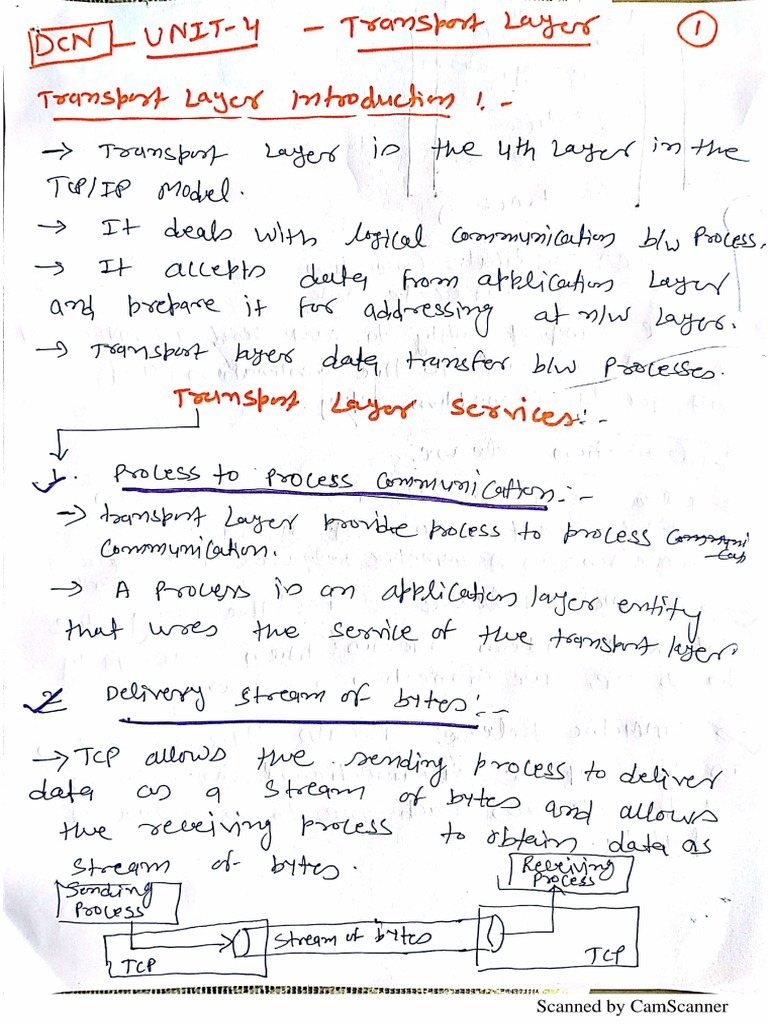 DCN - UNIT-4 - Transport Layer 1
Transport Layer Introduction :-
→ Transport Layer is the 4th Layer in the
TCP/IP Model.
→ It deals with logical communication b/w Process.
→ It accepts data from application Layer
and prepare it for addressing at n/w Layer.
→ Transport layer data transfer b/w Processes.
Transport Layer Services:-
1. Process to Process Communication:-
→ transport Layer provide process to process
communication.
→ A Process is an application layer entity
that uses the service of the transport layer
2 Delivery stream of bytes:-
→ TCP allows the sending process to deliver
data as a stream of bytes and allows
the receiving process to obtain data as
stream of bytes.
Receiving
Process
Sending
Process
stream of bytes
TCP
TCP
Scanned by CamScanner